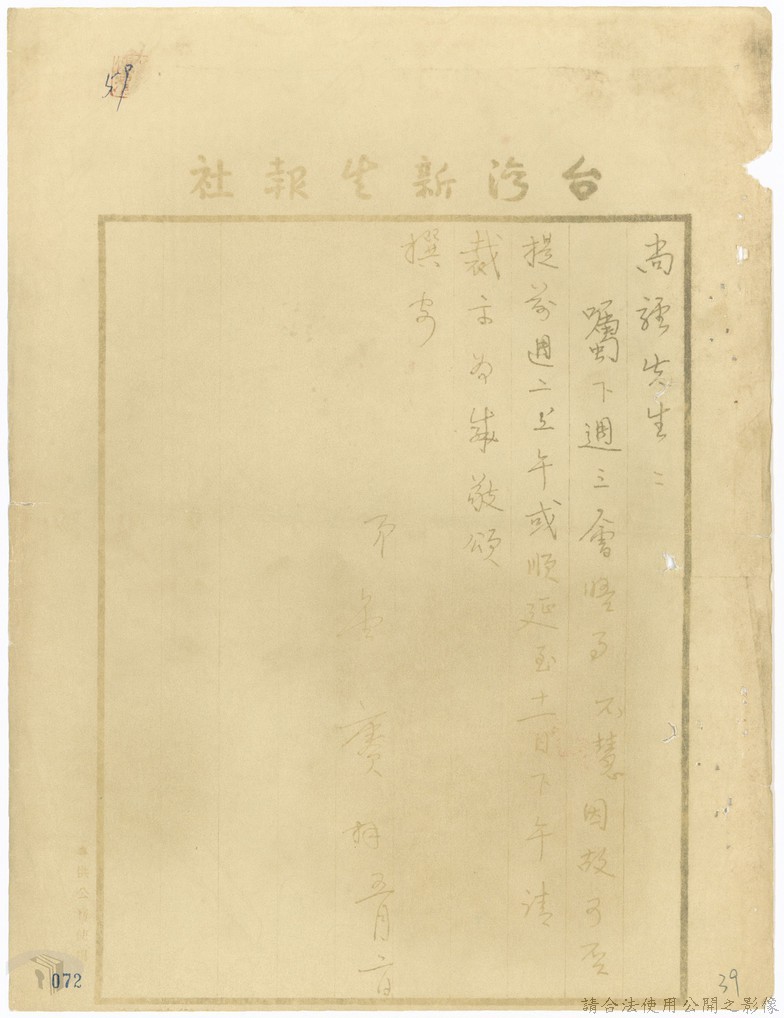 台灣新生報社
尚經先生：
囑下週三會晤事不慧因故可否
提前週二上午或順延至十一日下午請
裁示為感敬頌
撰安
弟 賡 拜 五月六日
072
39
請合法使用公開之影像